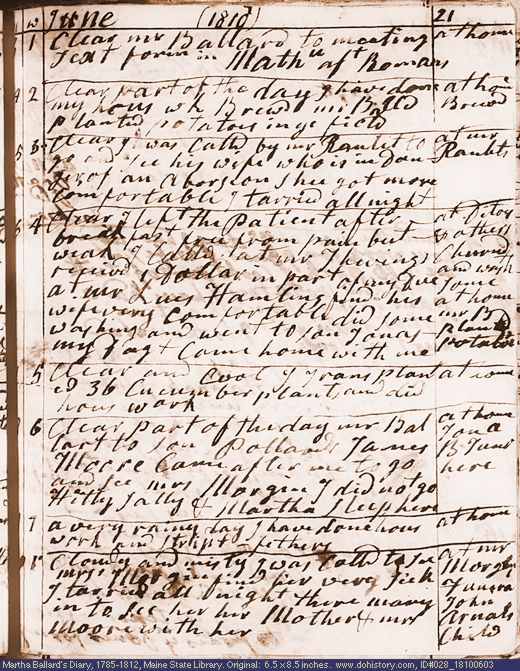 w June (1810) 21
1 Clear mr Ballard to meeting at home
Text forin in Math w aft Romans
2 Clear part of the day I have done at home
my hous wk Brewd mr Balld Brewd
planted potatoes in ye field
3 Clear I was Calld by mr Hamlet to at mr
go and see his wife who is in dan Hamlets
ger of an Aborseon Shee got more
Comfortable I tarried all night
4 Clear I left the Patient after at Ditos
breakfast free from pain but
weak I Calld at mr Churnd
receivd 1 Dollar in part of my due and wash
at mr Lues Hamling find his at home
wife very Comfortable did some mr B
washing and went to son Jonas plantd
my Dagt Came home with me potatoes
5 Clear and Cool I Transplant at home
ed 36 Cucumber plants and did
hous work
6 Clear part of the day mr Bal at home
lard to son Pollards James
Moore Came after me to go
and see mrs Morgin I did not go here
Hitty Sally & Martha Sleep here
7 a very rainy day I have done hous at home
work and Stript fethers
1 Cloudy and misty I was Calld to see at mr
mrs Morgin find her very Sick Morgin
I tarried all night there many
in to see her her Mother & mrs John
Moore with her Child
Martha Ballard's Diary, 1785-1812, Maine State Library. Original: 6.5 x 8.5 inches. www.dohistory.com, ID#028_18100603